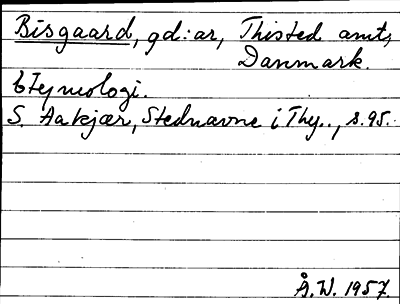 Bisgaard, gd:ar, Thisted amt,
Danmark.
Etymologi.
S. Aakjær, Stednavne i Thy., s. 95.
Å. W. 1957.